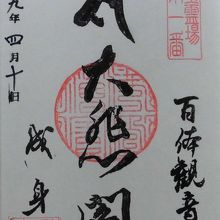 靈場
一番
百体觀音
大悲閣
九年四月十日
成身